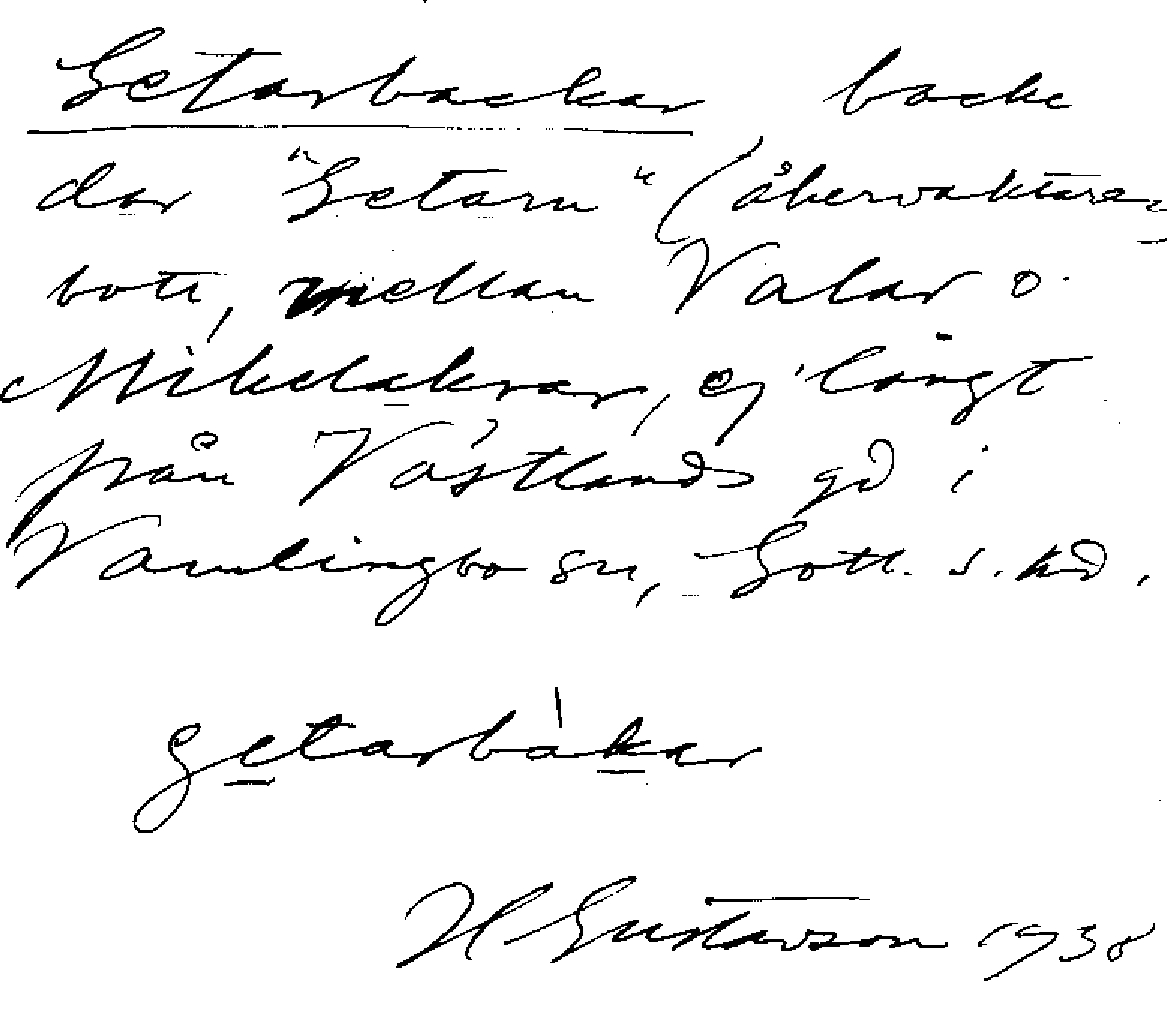 Getarbackar backe
där "Getarn" (åkervaktaren)
bott, mellan Valar o.
Mikelakrar, ej långt
från Västlands gd i
Vamlingbo sn, Gotl. s. hd.
getarbakar
H Gustavson 1938